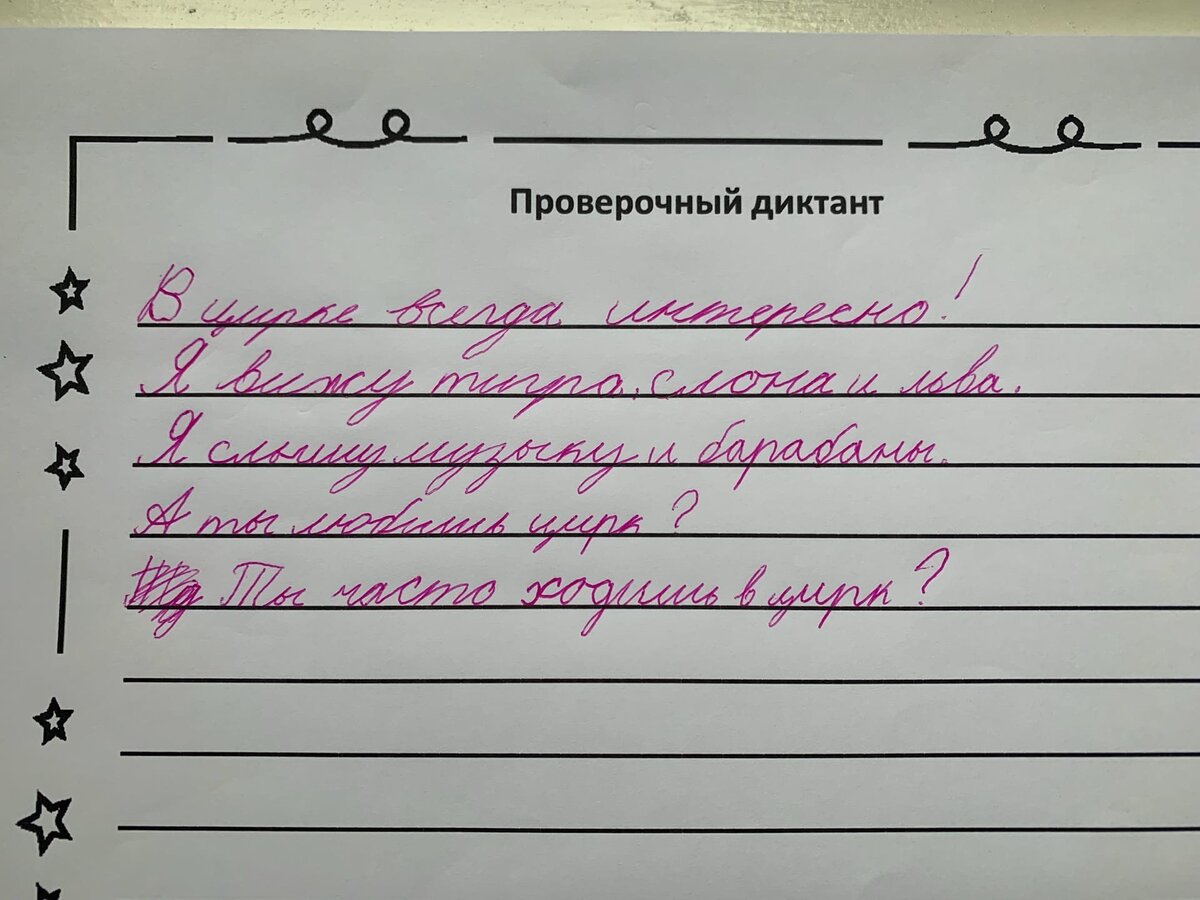 Проверочный диктант
В цирке всегда интересно!
Я вижу тигра, слона и льва.
Я слышу музыку и барабаны.
А ты любишь цирк?
Ты часто ходишь в цирк?